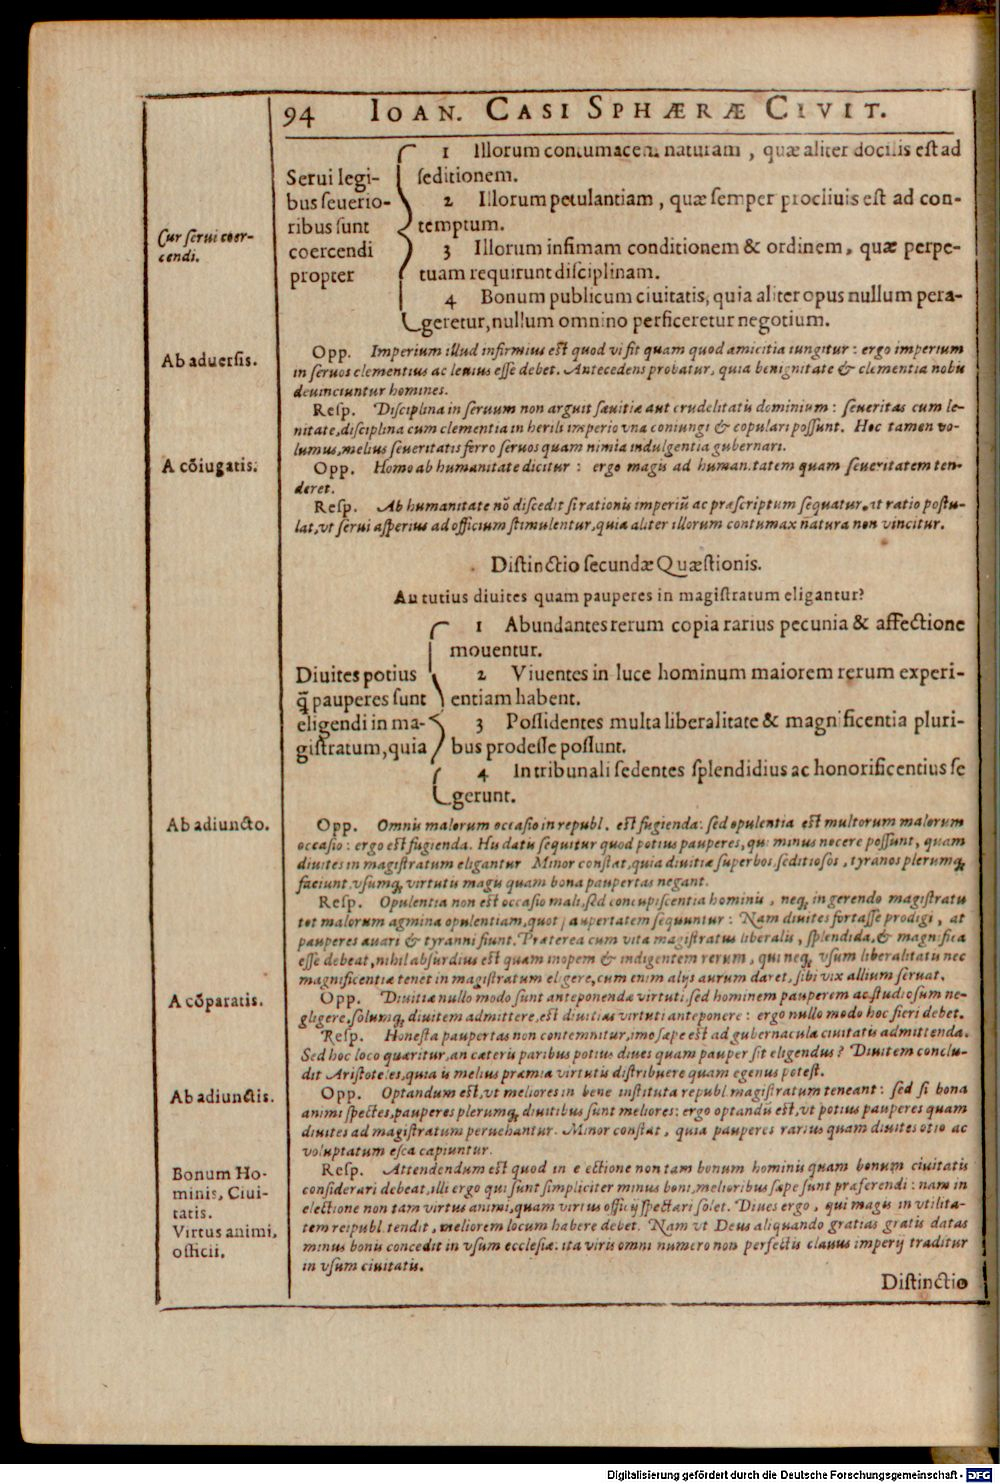 94 IOAN. CASI SPHÆRÆ CIVIT.
Cur serui coer-
cendi.
Serui legi-
bus seuerio-
ribus sunt
coercendi
propter
1 Illorum contumacem naturam, quæ aliter docilis est ad
seditionem.
2 Illorum petulantiam, quæ semper procliuis est ad con-
temptum.
3 Illorum infimam conditionem & ordinem, quæ perpe-
tuam requirunt disciplinam.
4 Bonum publicum ciuitatis, quia aliter opus nullum pera-
geretur, nullum omnino perficeretur negotium.
Ab aduersis.
Opp. Imperium illud infirmius est quod vi fit quam quod amicitia iungitur: ergo imperium
in seruos clementius ac lenius esse debet. Antecedens probatur, quia benignitate & clementia nobis
deuinciuntur homines.
Resp. Disciplina in seruum non arguit sæuitiæ aut crudelitatis dominium: seueritas cum le-
nitate, disciplina cum clementia in herili imperio vna coniungi & copulari possunt. Hoc tamen vo-
lumus, melius seueritatis ferro seruos quam nimia indulgentia gubernari.
A cōiugatis.
Opp. Homo ab humanitate dicitur: ergo magis ad humanitatem quam seueritatem ten-
deret.
Resp. Ab humanitate nō discedit si rationis imperiū ac præscriptum sequatur, at ratio postu-
lat, vt serui asperius ad officium stimulentur, quia aliter illorum contumax natura non vincitur.
Distinctio secundæ Quæstionis.
An tutius diuites quam pauperes in magistratum eligantur?
Diuites potius
q̃ pauperes sunt
eligendi in ma-
gistratum, quia
1 Abundantes rerum copia rarius pecunia & affectione
mouentur.
2 Viuentes in luce hominum maiorem rerum experi-
entiam habent.
3 Possidentes multa liberalitate & magnificentia pluri-
bus prodesse possunt.
4 In tribunali sedentes splendidius ac honorificentius se
gerunt.
Ab adiuncto.
Opp. Omnis malorum occasio in republ. est fugienda: sed opulentia est multorum malorum
occasio: ergo est fugienda. His datis sequitur quod potius pauperes, qui minus nocere possunt, quam
diuites in magistratum eligantur Minor constat, quia diuitiæ superbos, seditiosos, tyranos plerumq;
faciunt, vsumq; virtutis magis quam bona paupertas negant.
Resp. Opulentia non est occasio mali, sed concupiscentia hominis, neq; in gerendo magistratu
tot malorum agmina opulentiam, quot paupertatem sequuntur: Nam diuites fortasse prodigi, at
pauperes auari & tyranni fiunt. Præterea cum vita magistratus liberalis, splendida, & magnifica
esse debeat, nihil absurdius est quam inopem & indigentem rerum, qui neq; vsum liberalitatis nec
magnificentiæ tenet in magistratum eligere, cum enim alijs aurum daret, sibi vix allium seruat.
A cōparatis.
Opp. Diuitiæ nullo modo sunt anteponendæ virtuti, sed hominem pauperem ac studiosum ne-
gligere, solumq; diuitem admittere, est diuitias virtuti anteponere: ergo nullo modo hoc fieri debet.
Resp. Honesta paupertas non contemnitur, imo sæpe est ad gubernacula ciuitatis admittenda.
Sed hoc loco quæritur, an cæteris paribus potius diues quam pauper sit eligendus? Diuitem conclu-
dit Aristoteles, quia is melius præmia virtutis distribuere quam egenus potest.
Ab adiunctis.
Opp. Optandum est, vt meliores in bene instituta republ. magistratum teneant: sed si bona
animi spectes, pauperes plerumq; diuitibus sunt meliores: ergo optandū est, vt potius pauperes quam
diuites ad magistratum peruehantur. Minor constat, quia pauperes rarius quam diuites otio ac
voluptatum esca capiuntur.
Bonum Ho-
minis, Ciui-
tatis.
Virtus animi,
officii.
Resp. Attendendum est quod in electione non tam bonum hominis quam bonum ciuitatis
considerari debeat, illi ergo qui sunt simpliciter minus boni, melioribus sæpe sunt præferendi: nam in
electione non tam virtus animi, quam virtus officij spectari solet. Diues ergo, qui magis in vtilita-
tem reipubl. tendit, meliorem locum habere debet. Nam vt Deus aliquando gratias gratis datas
minus bonis concedit in vsum ecclesiæ: ita viris omni numero non perfectis clauus imperij traditur
in vsum ciuitatis.
Distinctio
Digitalisierung gefördert durch die Deutsche Forschungsgemeinschaft - DFG